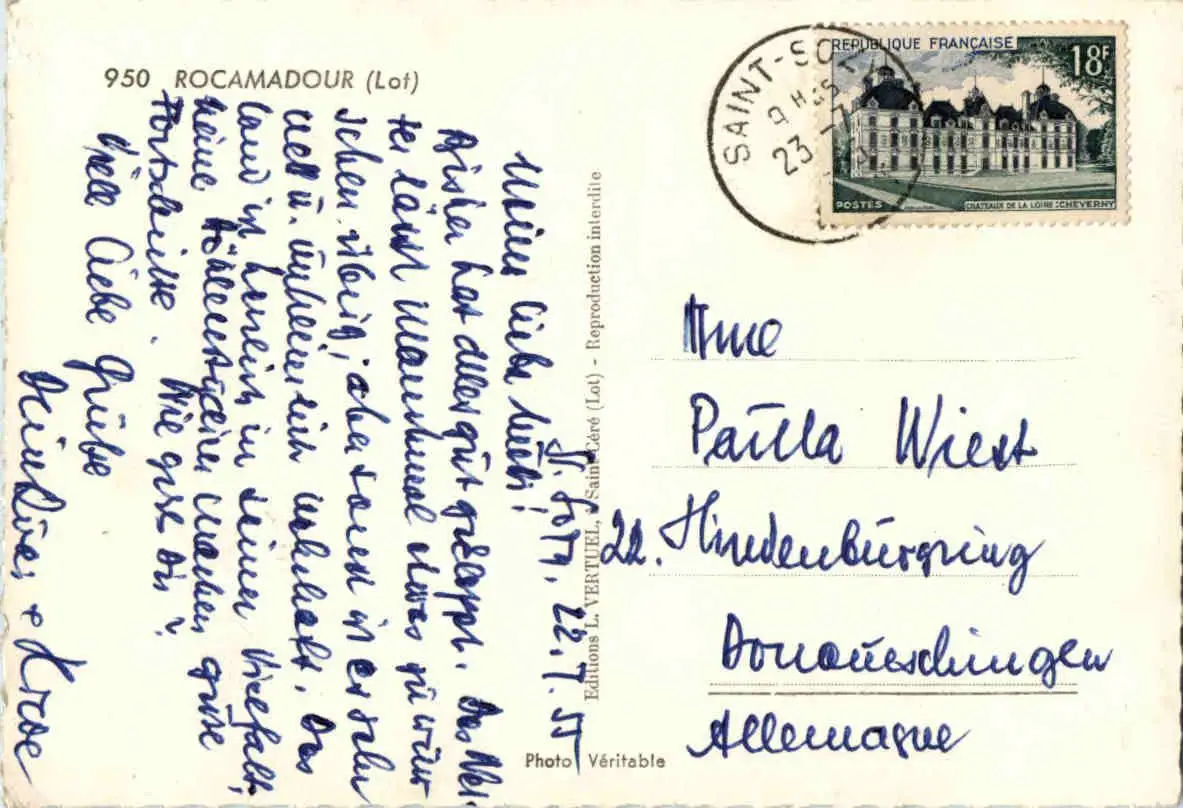 950 ROCAMADOUR (Lot)
St. Sozy, 22.7.55
Meine liebe Mutti!
Bisher hat alles gut geklappt. Das Wet-
ter lässt manchmal etwas zu wün-
schen übrig, aber sonst ist es sehr
nett u.
Land ist herrlich in seiner Vielfalt,
meine machen gute
Fortschritte. Wie geht's Dir?
Viele liebe Grüße
Editions L. VERTUEL, Saint-Céré (Lot) - Reproduction interdite
Photo Véritable
SAINT-SOZY
23 -7
REPUBLIQUE FRANÇAISE
18F
POSTES
CHATEAUX DE LA LOIRE: CHEVERNY
Mme
Paula Wiest
22. Hindenburgring
Donaueschingen
Allemagne